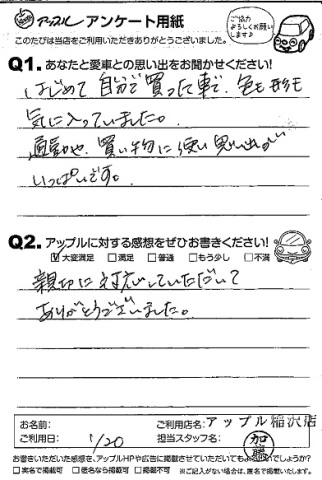 アップル アンケート用紙
ご協力
よろしくお願い
します♪
このたびは当店をご利用いただきありがとうございました。
Q1. あなたと愛車との思い出をお聞かせください!
はじめて自分で買った車で、色も形も
気に入っていました。
通勤や、買い物に使い思い出が
いっぱいです。
Q2. アップルに対する感想をぜひお書きください!
☑大変満足 □満足 □普通 □もう少し □不満
親切に対応していただいて
ありがとうございました。
お名前: ご利用店名:アップル稲沢店
ご利用日: 1/20 担当スタッフ名: 加藤
お書きいただいた感想を、アップルHPや広告に掲載させていただいてもよろしいでしょうか?
□実名で掲載可 □匿名なら掲載可 □掲載不可 ※ご記入がない場合は、匿名で掲載いたします。